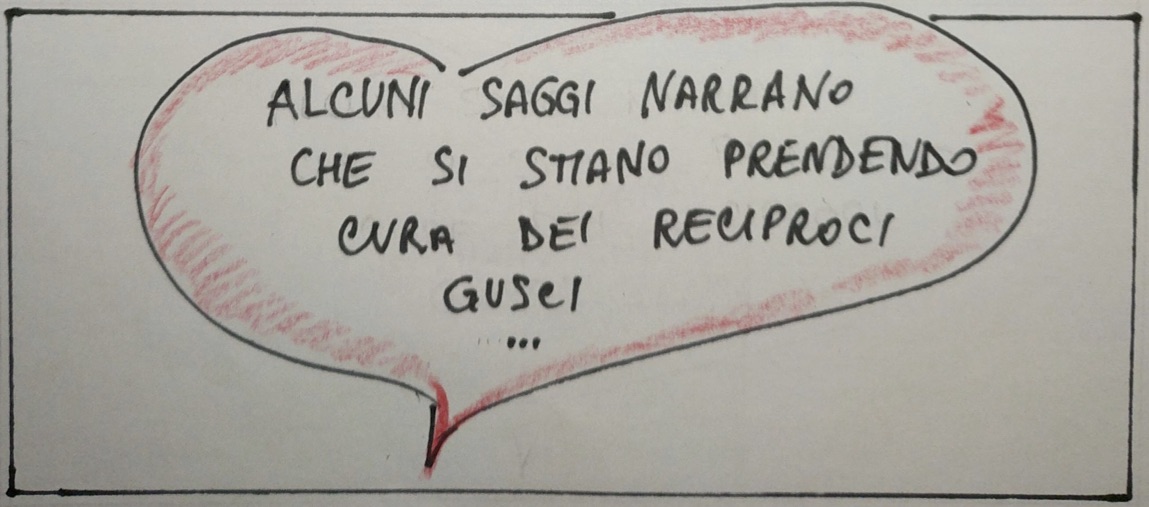 ALCUNI SAGGI NARRANO
CHE SI STIANO PRENDENDO
CURA DEI RECIPROCI
GUSCI
...